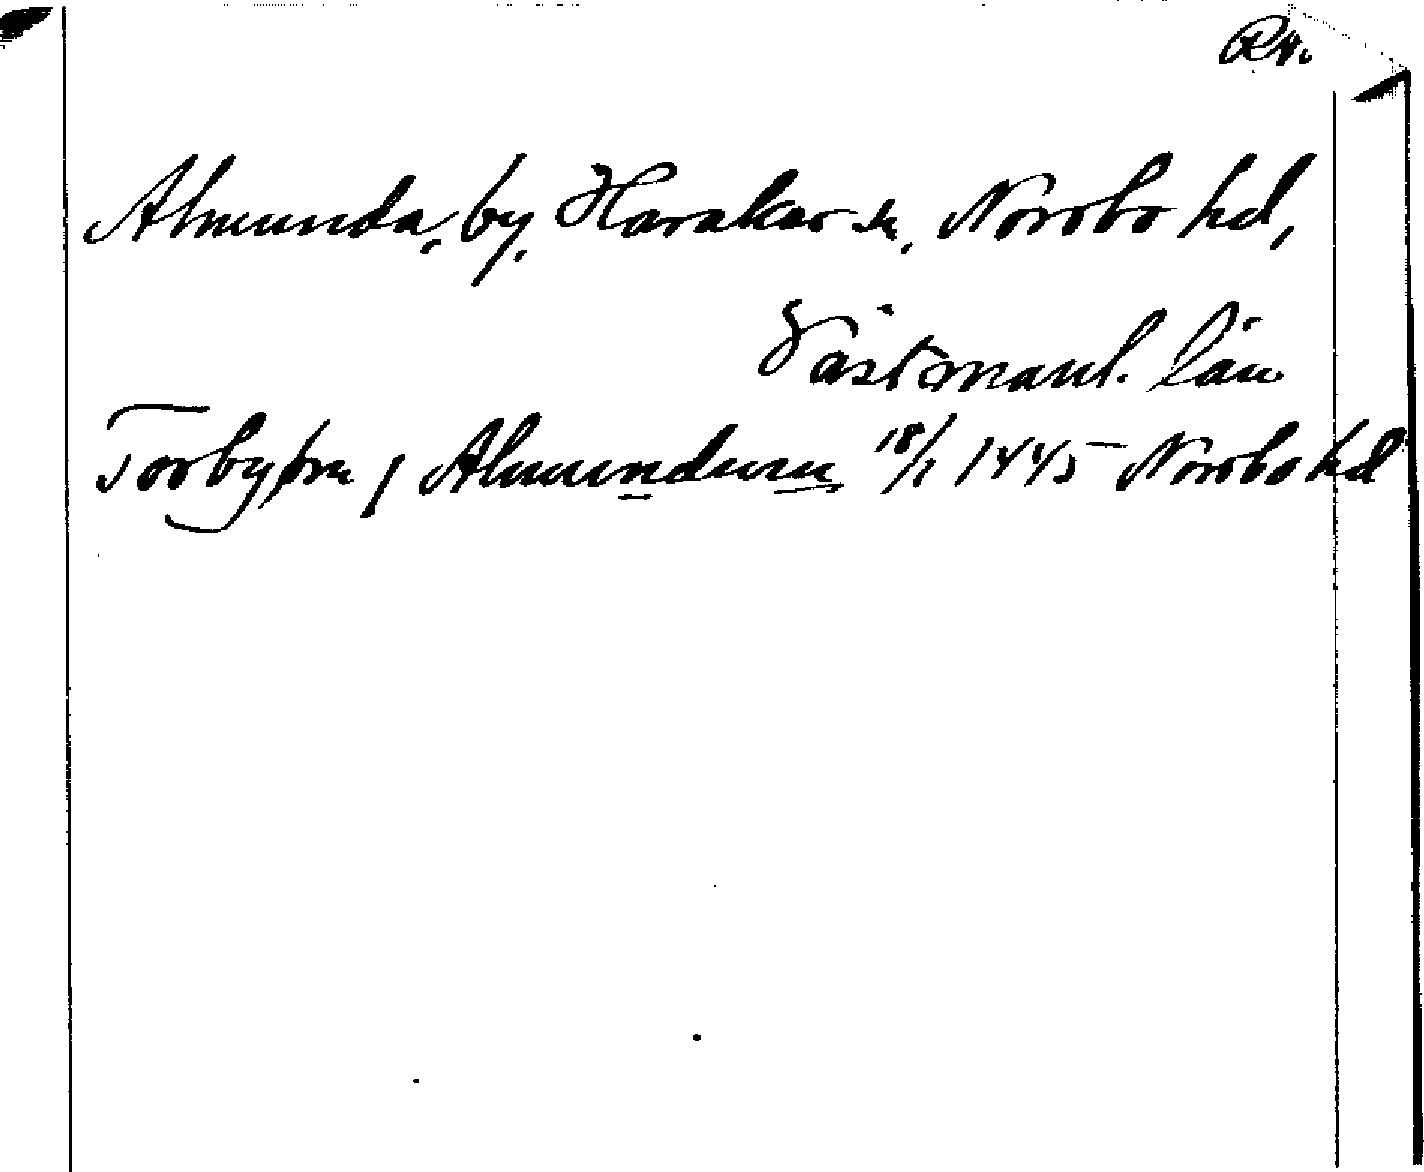 RA.
Almunda, by, Haraker sn, Norrbo hd,
Västmanl. län
Torbyþrn j Almundum 18/1 1445 Norrbo hd